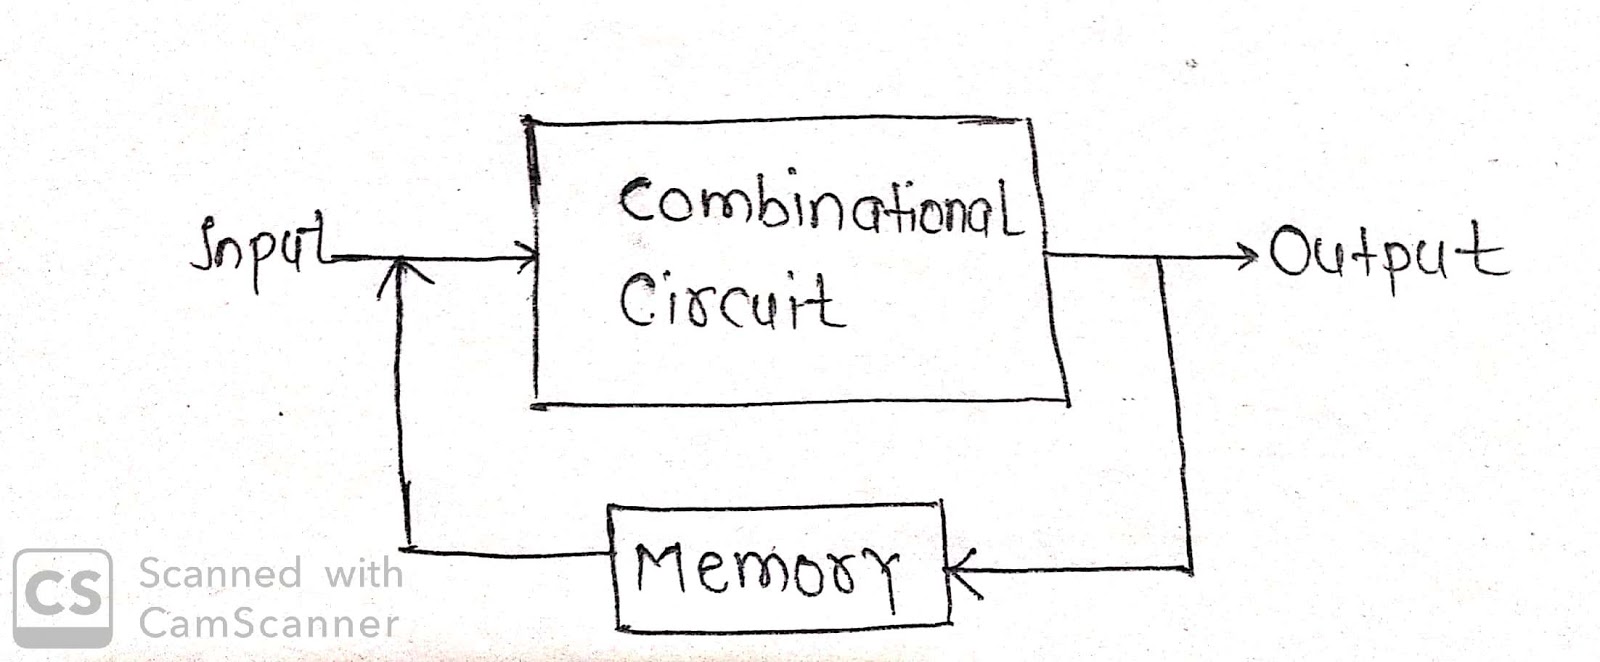 Combinational
Circuit
Input
Output
Memory
CS
Scanned with
CamScanner